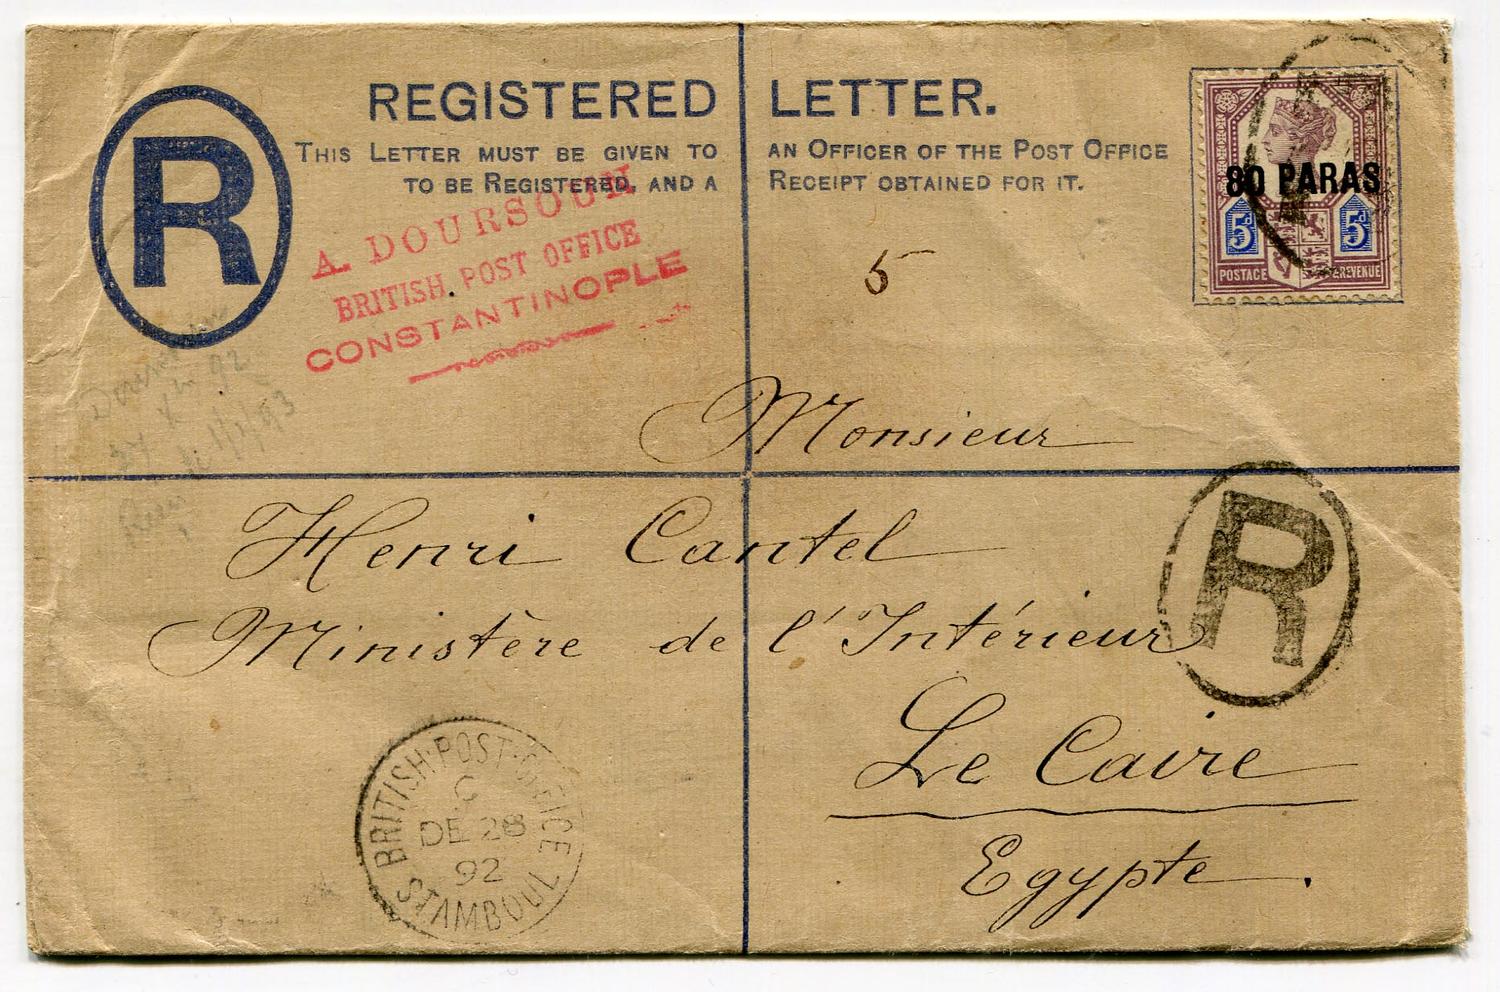 REGISTERED LETTER.
THIS LETTER MUST BE GIVEN TO AN OFFICER OF THE POST OFFICE
TO BE REGISTERED, AND A RECEIPT OBTAINED FOR IT.
R
80 PARAS
5d 5d
POSTAGE & REVENUE
A. DOURSOUN
BRITISH. POST OFFICE
CONSTANTINOPLE
5
92
1/1/93
Monsieur
Henri Cantel
Ministère de l'Intérieur
R
Le Caire
Egypte.
BRITISH·POST·OFFICE
C
DE 28
92
STAMBOUL